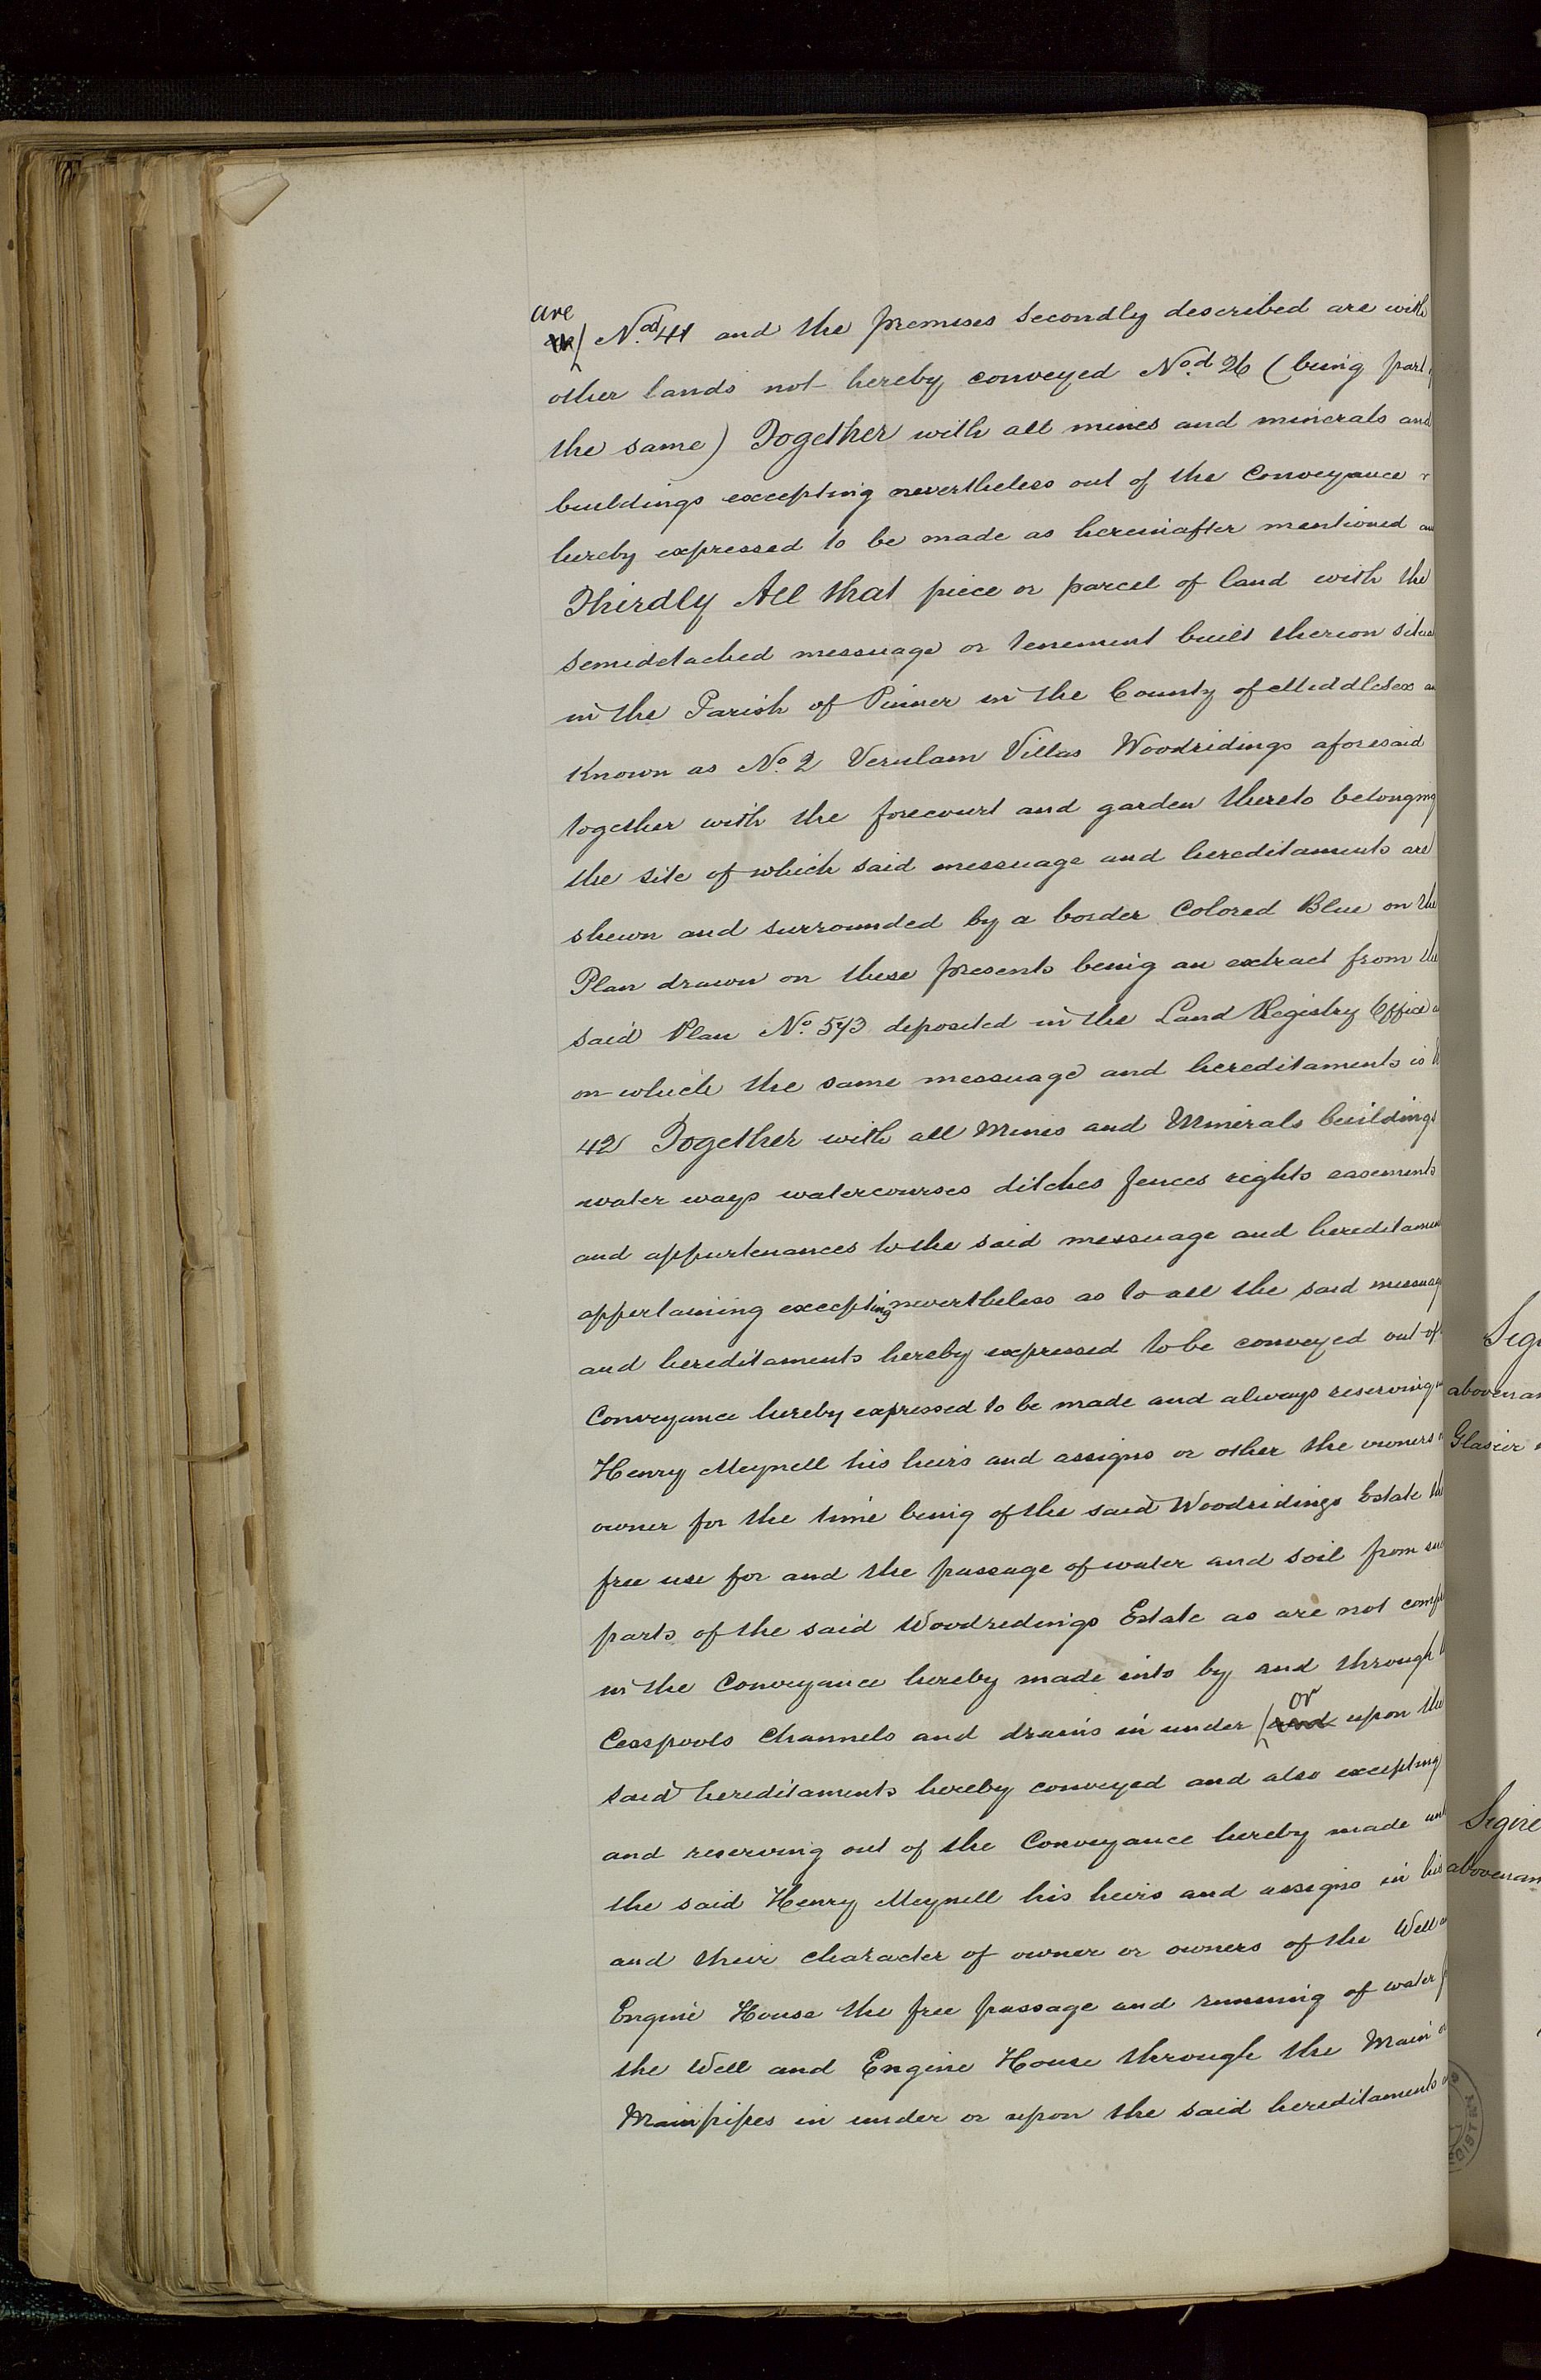 are
No.d 41 and the premises secondly described are with
other lands not hereby conveyed No.d 26 (being part
the same) Together with all mines and minerals and
buildings excepting nevertheless out of the Conveyance
hereby expressed to be made as hereinafter mentioned
Thirdly All that piece or parcel of land with the
semidetached messuage or tenement built thereon situa
in the Parish of Pinner in the County of Middlesex
known as No. 2 Verulam Villas Woodridings aforesaid
together with the forecourt and garden thereto belonging
the site of which said messuage and hereditaments are
shewn and surrounded by a border Colored Blue on the
Plan drawn on these presents being an extract from the
said Plan No. 573 deposited in the Land Registry Office
on which the same messuage and hereditaments is
42 Together with all Mines and Minerals buildings
water ways watercourses ditches fences rights easements
and appurtenances to the said messuage and hereditamen
appertaining excepting nevertheless as to all the said messuag
and hereditaments hereby expressed to be conveyed out of
Conveyance hereby expressed to be made and always reserving
Henry Meynell his heirs and assigns or other the owners
owner for the time being of the said Woodridings Estate the
free use for and the passage of water and soil from su
parts of the said Woodridings Estate as are not comp
in the Conveyance hereby made into by and through
or
Cesspools Channels and drains in under and upon the
said hereditaments hereby conveyed and also excepting
and reserving out of the Conveyance hereby made unt
the said Henry Meynell his heirs and assigns in his
and their character of owner or owners of the Well
Engine House the free passage and running of water
the Well and Engine House through the Main
Main pipes in under or upon the said hereditaments
Sig
abovenam
Glasier
Signe
abovenam